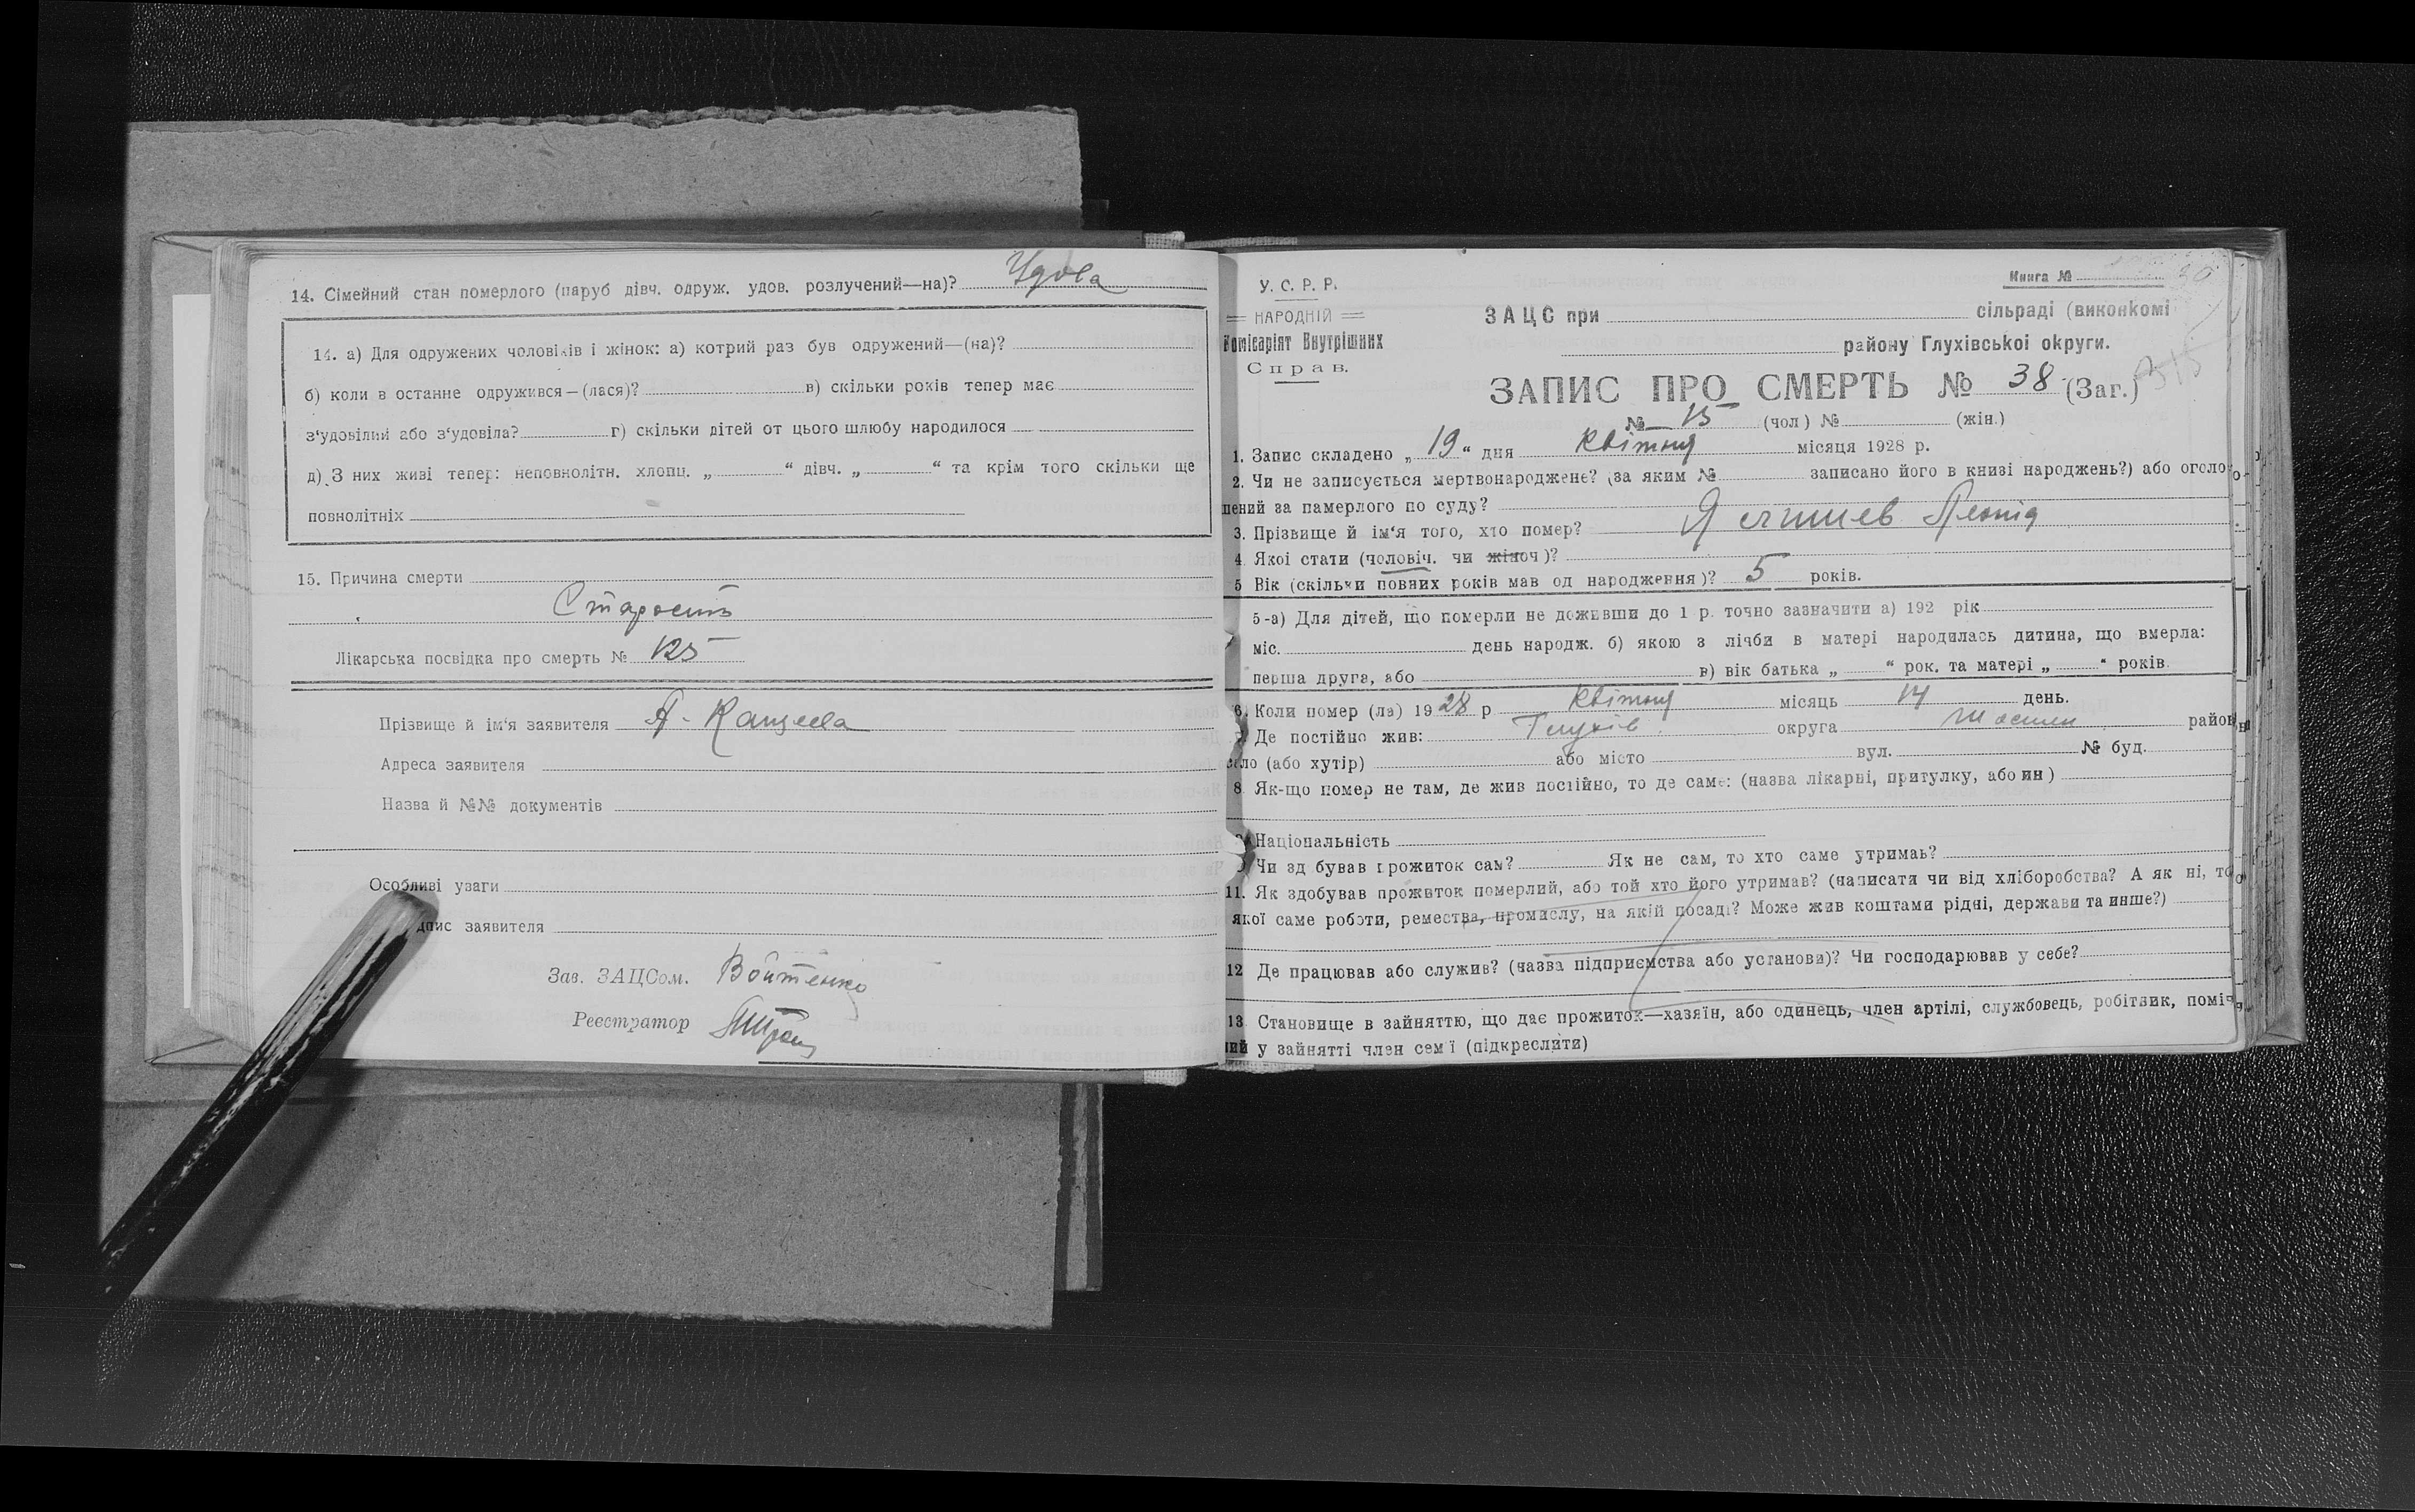 14. Сімейний стан померлого (паруб дівч. одруж. удов. розлучений—на)? Удова
14. а) Для одружених чоловіків і жінок: а) котрий раз був одружений—(на)?
б) коли в останнє одружився—(лася)? в) скільки років тепер має
з'удовілий або з'удовіла? г) скільки дітей от цього шлюбу народилося
д) З них живі тепер: неповнолітн. хлопц. „ “ дівч. „ “ та крім того скільки ще
повнолітніх
15. Причина смерти
Старость
Лікарська посвідка про смерть № 125
Прізвище й ім'я заявителя А.
Адреса заявителя
Назва й №№ документів
Особливі уваги
дпис заявителя
Зав. ЗАЦСом. Войтенко
Реєстратор
Книга № 30
У. С. Р. Р.
НАРОДНІЙ
Комісаріят Внутрішних
Справ.
ЗАЦС при сільраді (виконкомі
району Глухівської округи.
315
ЗАПИС ПРО СМЕРТЬ № 38 (Заг.)
№ 15 (чол) № (жін.)
1. Запис складено „ 19 “ дня квітня місяця 1928 р.
2. Чи не записується мертвонароджене? (за яким № записано його в книзі народжень?) або оголо
шений за памерлого по суду?
3. Прізвище й ім'я того, хто помер? Леонід
4. Якої стати (чоловіч. чи жіноч)?
5 Вік (скільки повних років мав од народження)? 5 років.
5-а) Для дітей, що померли не доживши до 1 р. точно зазначити а) 192 рік
міс. день народж. б) якою з лічби в матері народилась дитина, що вмерла:
перша друга, або в) вік батька „ “ рок. та матері „ “ років.
6. Коли помер (ла) 1928 р квітня місяць 17 день.
Де постійно жив: Глухів округа район
село (або хутір) або місто вул. № буд.
8. Як-що помер не там, де жив постійно, то де саме: (назва лікарні, притулку, або ин)
9. Національність
Чи здобував прожиток сам? Як не сам, то хто саме утримає?
11. Як здобував прожиток померлий, або той хто його утримав? (написати чи від хліборобства? А як ні, то
якої саме роботи, ремества, промислу, на якій посаді? Може жив коштами рідні, держави та инше?)
12 Де працював або служив? (назва підприємства або установи)? Чи господарював у себе?
13. Становище в зайняттю, що дає прожиток—хазяїн, або одинець, член артілі, службовець, робітник, поміч
ний у зайнятті член сем'ї (підкреслити)